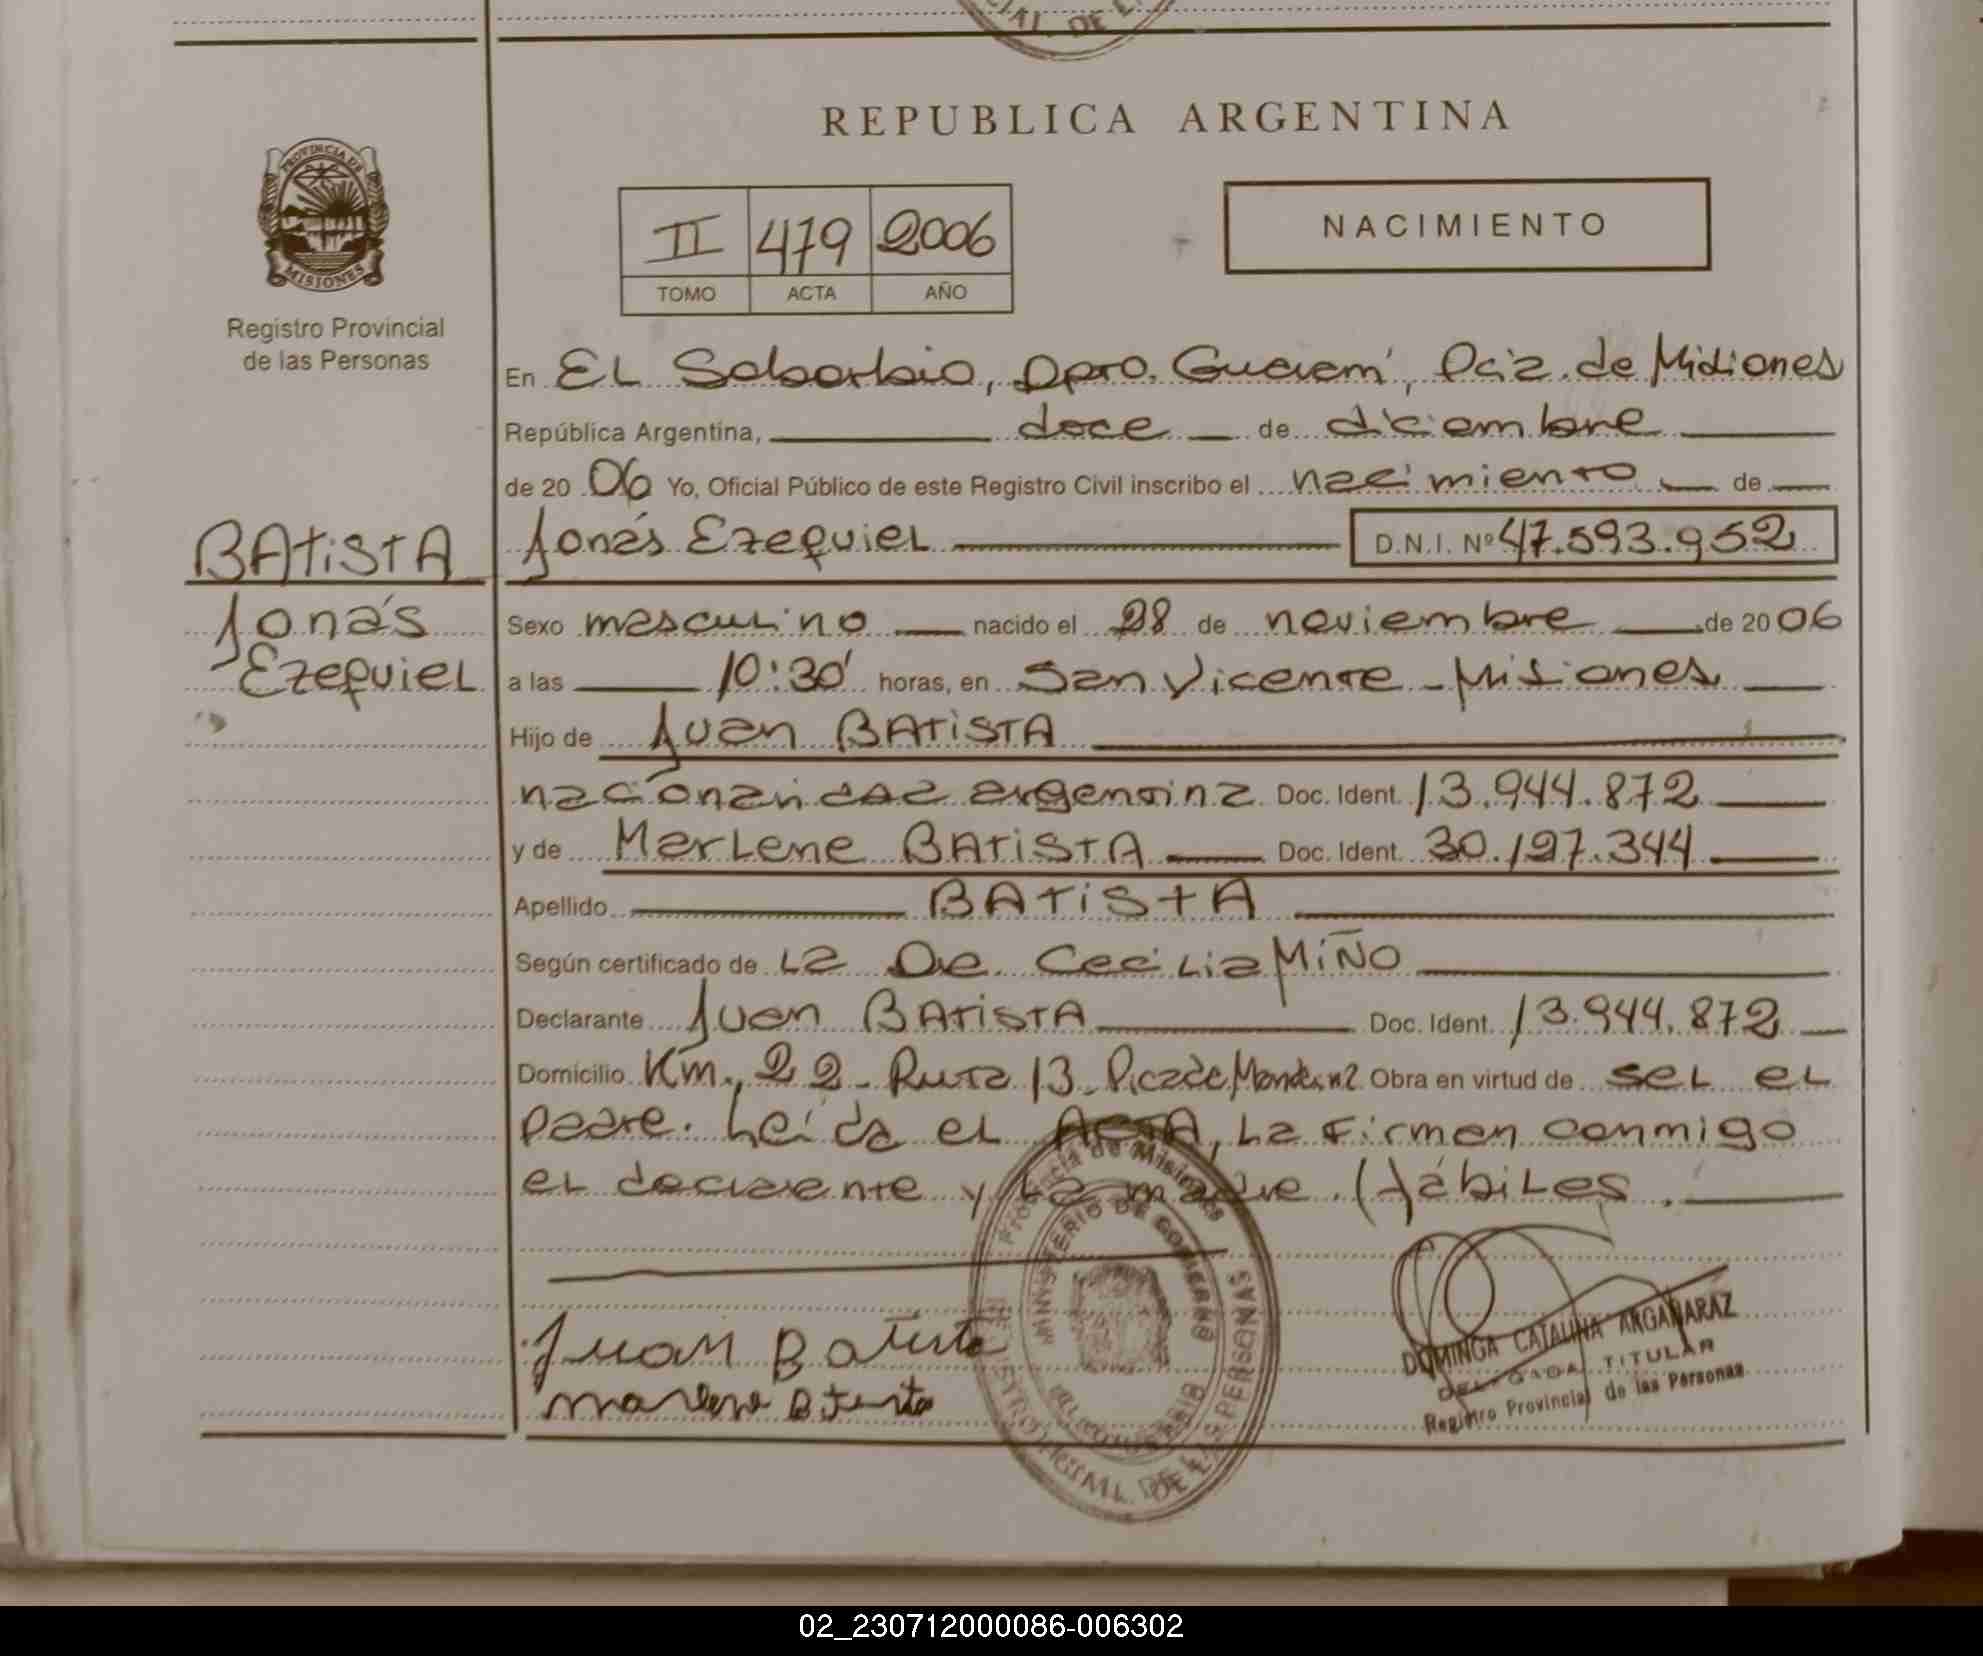 REPUBLICA ARGENTINA
PROVINCIA DE
MISIONES
Registro Provincial
de las Personas
II 479 2006
TOMO ACTA AÑO
NACIMIENTO
En EL Soberbio, Dpto. Guaraní, Pcia. de Misiones
República Argentina, doce de diciembre
de 20 06 Yo, Oficial Público de este Registro Civil inscribo el nacimiento de
BATiSTA Jonás EzequieL D.N.I. Nº 47.593.952
Jonás
EzequieL
Sexo masculino nacido el 28 de noviembre de 20 06
a las 10:30' horas, en San Vicente - Misiones
Hijo de Juan BATiSTA
nacionalidad argentina Doc. Ident. 13.944.872
y de MarLene BATiSTA Doc. Ident. 30.197.344
Apellido BATiSTA
Según certificado de La Da CeciLia MiÑO
Declarante Juan BATiSTA Doc. Ident. 13.944.872
Domicilio Km. 22 - Ruta 13 Obra en virtud de ser eL
padre. Leída eL ACTA, La Firman conmigo
eL declarante y La madre. HábiLes.
Juan Batista
Provincia de Misiones
MINISTERIO DE GOBIERNO
DE LAS PERSONAS
DOMINGA CATALINA ARGAÑARAZ
DELEGADA TITULAR
Registro Provincial de las Personas
02_230712000086-006302